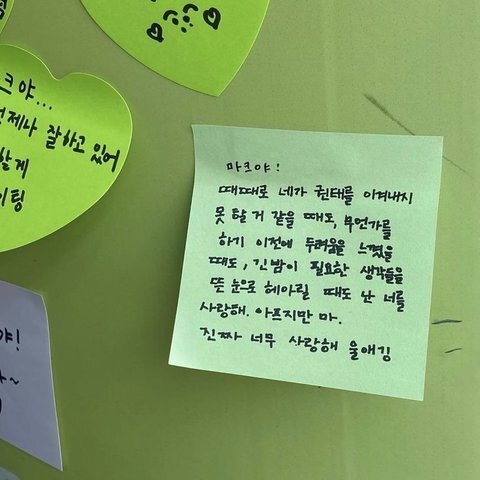 크야...
언제나 잘하고 있어
할게
이팅
마크야!
때때로 네가 권태를 이겨내지
못 할 거 같을 때도, 무언가를
하기 이전에 두려움을 느꼈을
때도, 긴 밤이 필요한 생각들을
뜬 눈으로 헤아릴 때도 난 너를
사랑해. 아프지만 마.
진짜 너무 사랑해 울애깅
야!